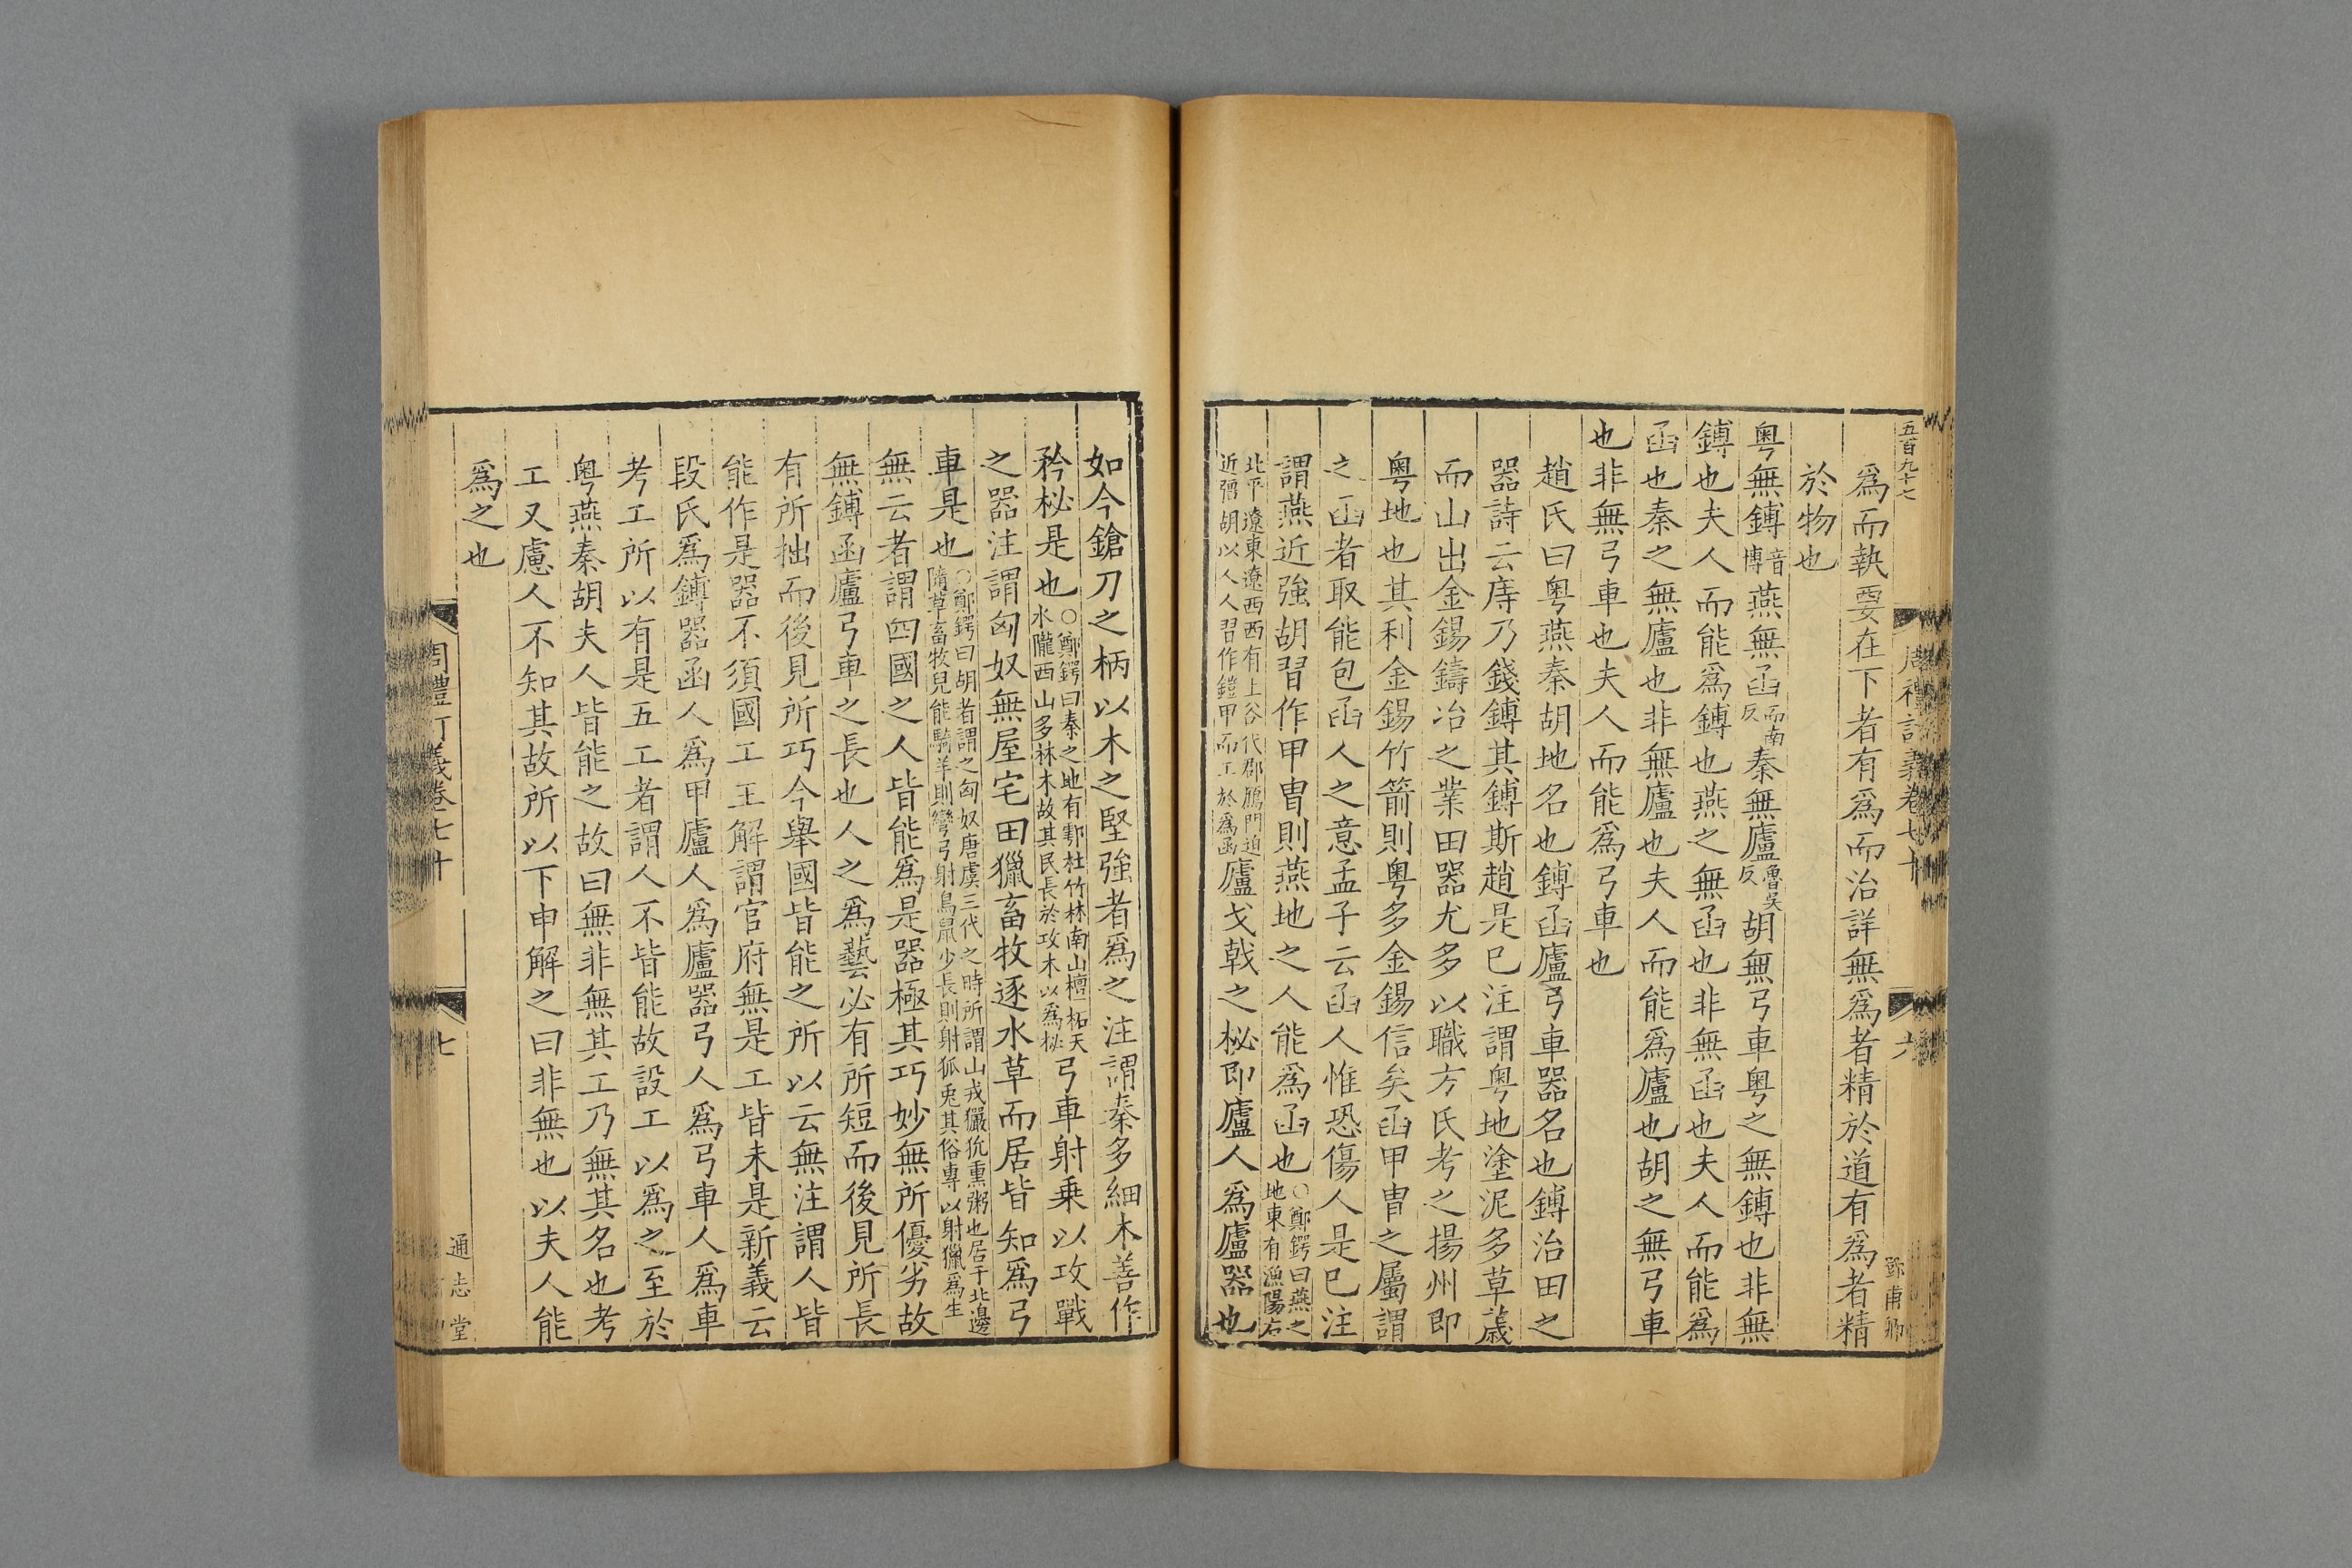 五百九十七
周禮訂義卷七十
六
鄧甫卿
爲而執要在下者有爲而治詳無爲者精於道有爲者精
於物也
粤無鎛音博燕無函而南反秦無廬魯吴反胡無弓車粤之無鎛也非無
鎛也夫人而能爲鎛也燕之無函也非無函也夫人而能爲
函也秦之無廬也非無廬也夫人而能爲廬也胡之無弓車
也非無弓車也夫人而能爲弓車也
趙氏曰粤燕秦胡地名也鎛函廬弓車器名也鎛治田之
器詩云庤乃錢鎛其鎛斯趙是巳注謂粤地塗泥多草薉
而山出金錫鑄冶之業田器尤多以職方氏考之揚州即
粤地也其利金錫竹箭則粤多金錫信矣函甲胄之屬謂
之函者取能包函人之意孟子云函人惟恐傷人是巳注
謂燕近強胡習作甲胄則燕地之人能爲函也○鄭鍔曰燕之地東有漁陽右
北平遼東遼西西有上谷代郡鴈門迫近彊胡以人人習作鎧甲而工於爲函廬戈戟之柲即廬人爲廬器也
如今鎗刀之柄以木之堅強者爲之注謂秦多細木善作
矜柲是也○鄭鍔曰秦之地有鄠杜竹林南山檀柘天水隴西山多林木故其民長於攻木以爲柲弓車射乗以攻戰
之器注謂匈奴無屋宅田獵畜牧逐水草而居皆知爲弓
車是也○鄭鍔曰胡者謂之匈奴唐虞三代之時所謂山戎玁狁熏粥也居于北邊隨草畜牧兒能騎羊則彎弓射鳥鼠少長則射狐兎其俗專以射獵爲生
無云者謂四國之人皆能爲是器極其巧妙無所優劣故
無鎛函廬弓車之長也人之爲藝必有所短而後見所長
有所拙而後見所巧今舉國皆能之所以云無注謂人皆
能作是器不須國工王解謂官府無是工皆未是新義云
段氏爲鎛器函人爲甲廬人爲廬器弓人爲弓車人爲車
考工所以有是五工者謂人不皆能故設工以爲之至於
粤燕秦胡夫人皆能之故曰無非無其工乃無其名也考
工又慮人不知其故所以下申解之曰非無也以夫人能
爲之也
周禮訂義卷七十
七
通志堂